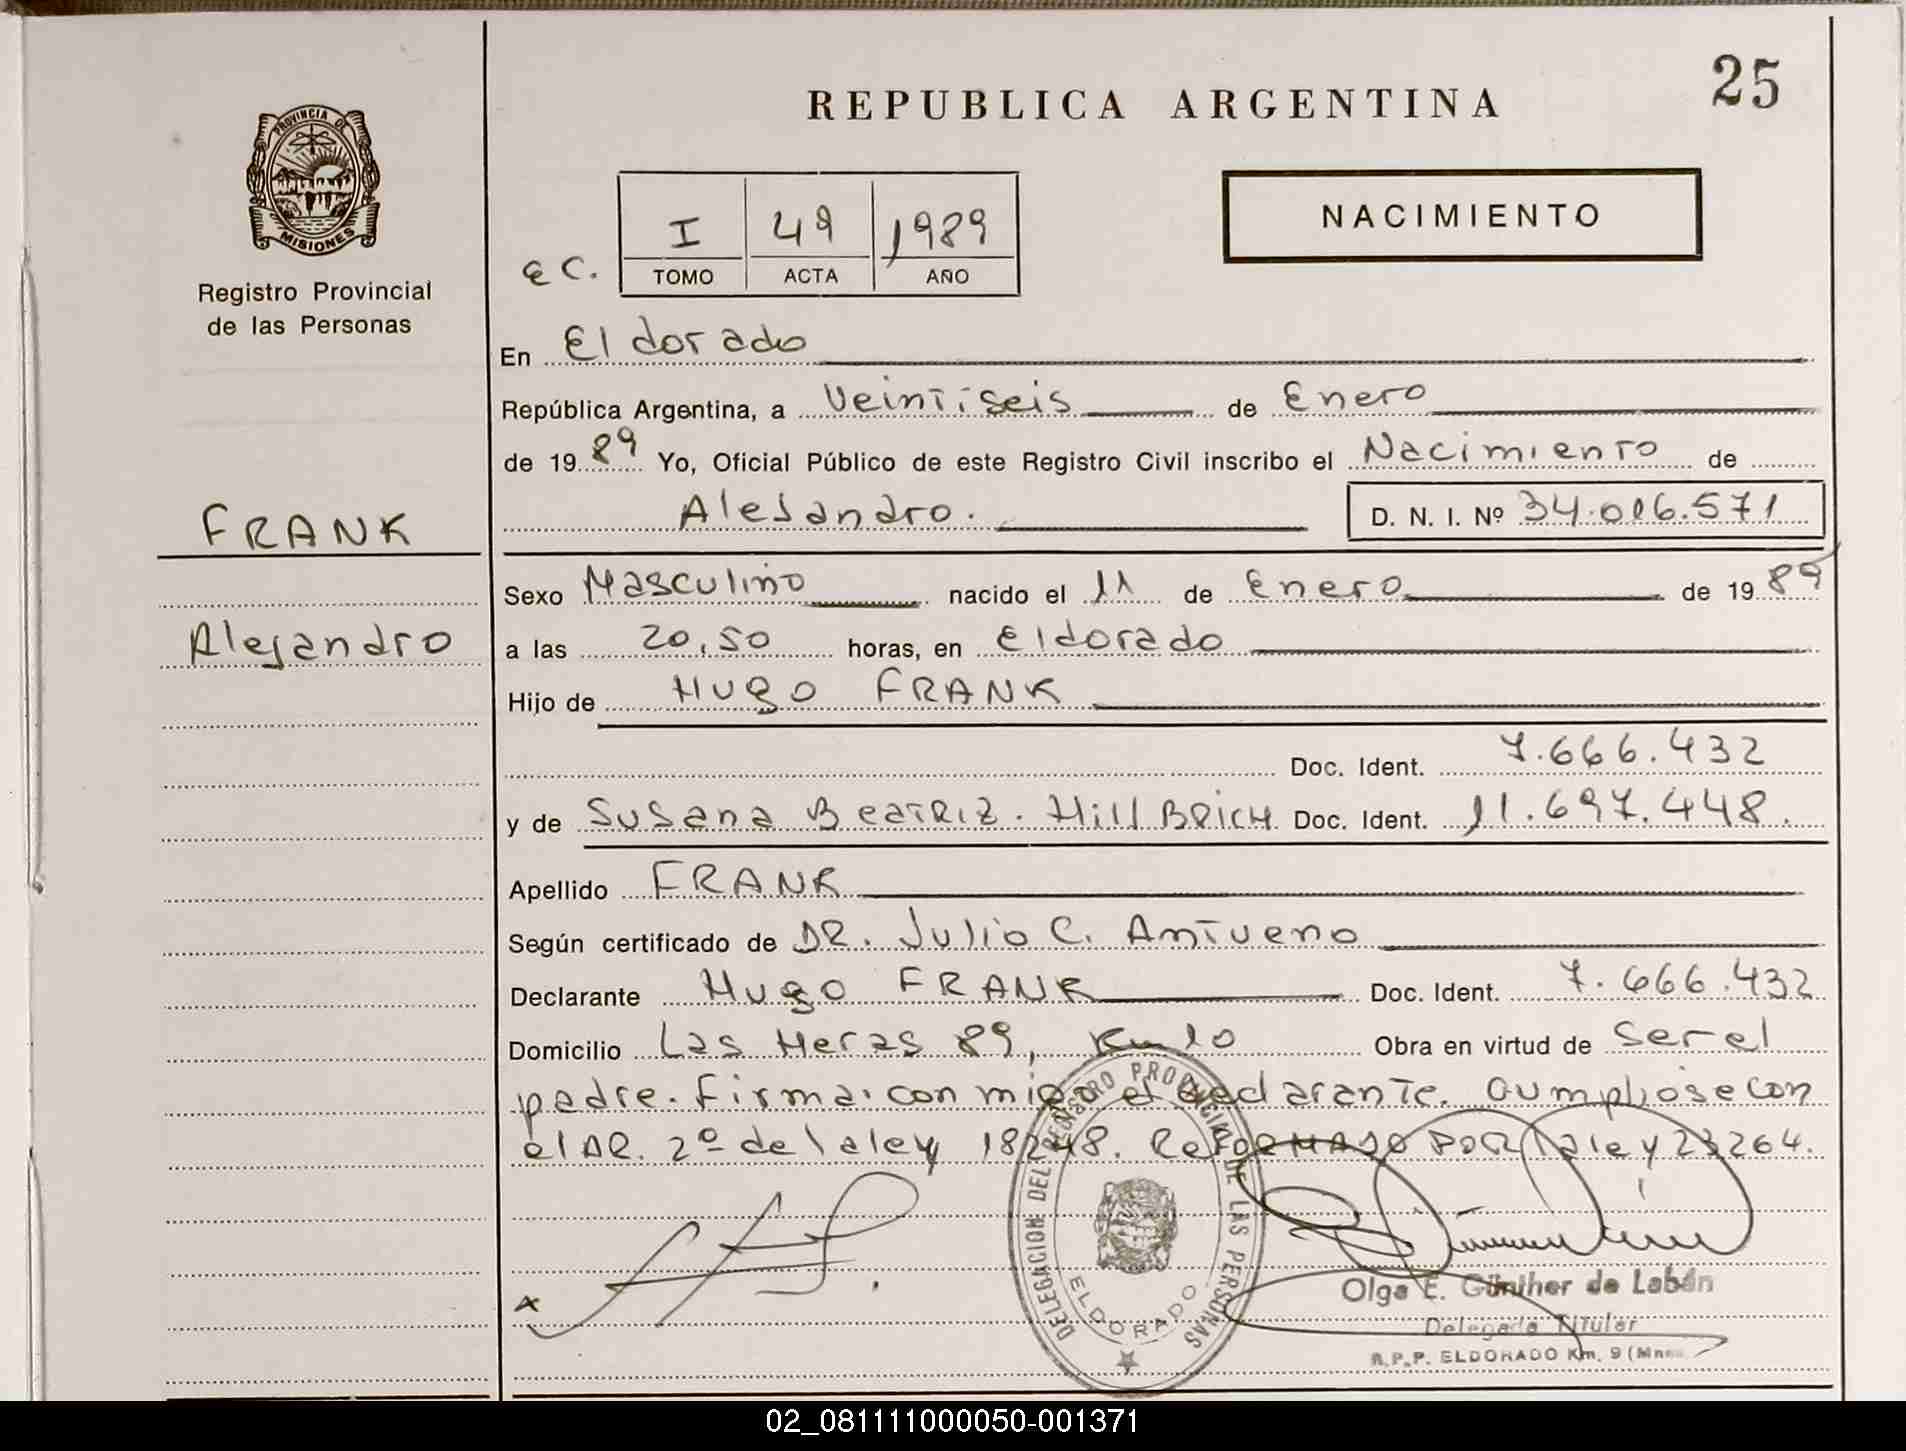 25
REPUBLICA ARGENTINA
PROVINCIA DE
MISIONES
Registro Provincial
de las Personas
NACIMIENTO
I 49 1989
E C.
TOMO ACTA AÑO
En Eldorado
República Argentina, a Veintiseis de Enero
de 1989 Yo, Oficial Público de este Registro Civil inscribo el Nacimiento de
FRANK
Alejandro. D. N. I. Nº 34.016.571
Sexo Masculino nacido el 11 de Enero de 1989
Alejandro
a las 20,50 horas, en Eldorado
Hijo de Hugo FRANK
Doc. Ident. 7.666.432
y de Susana BeatRiz. HillBRicH Doc. Ident. 11.697.448.
Apellido FRANK
Según certificado de DR. Julio C. Antueno
Declarante Hugo FRANK Doc. Ident. 7.666.432
Domicilio Las Heras 89, Km 10 Obra en virtud de ser el
padre. firma: con migo el declarante. Cumpliose con
el AR. 2º de la ley 18248. ReFORMADO POR la ley 23264.
DELEGACION DEL REGISTRO PROVINCIAL DE LAS PERSONAS
ELDORADO
Olga E. Günther de Labán
Delegada Titular
R.P.P. ELDORADO Km. 9
02_081111000050-001371